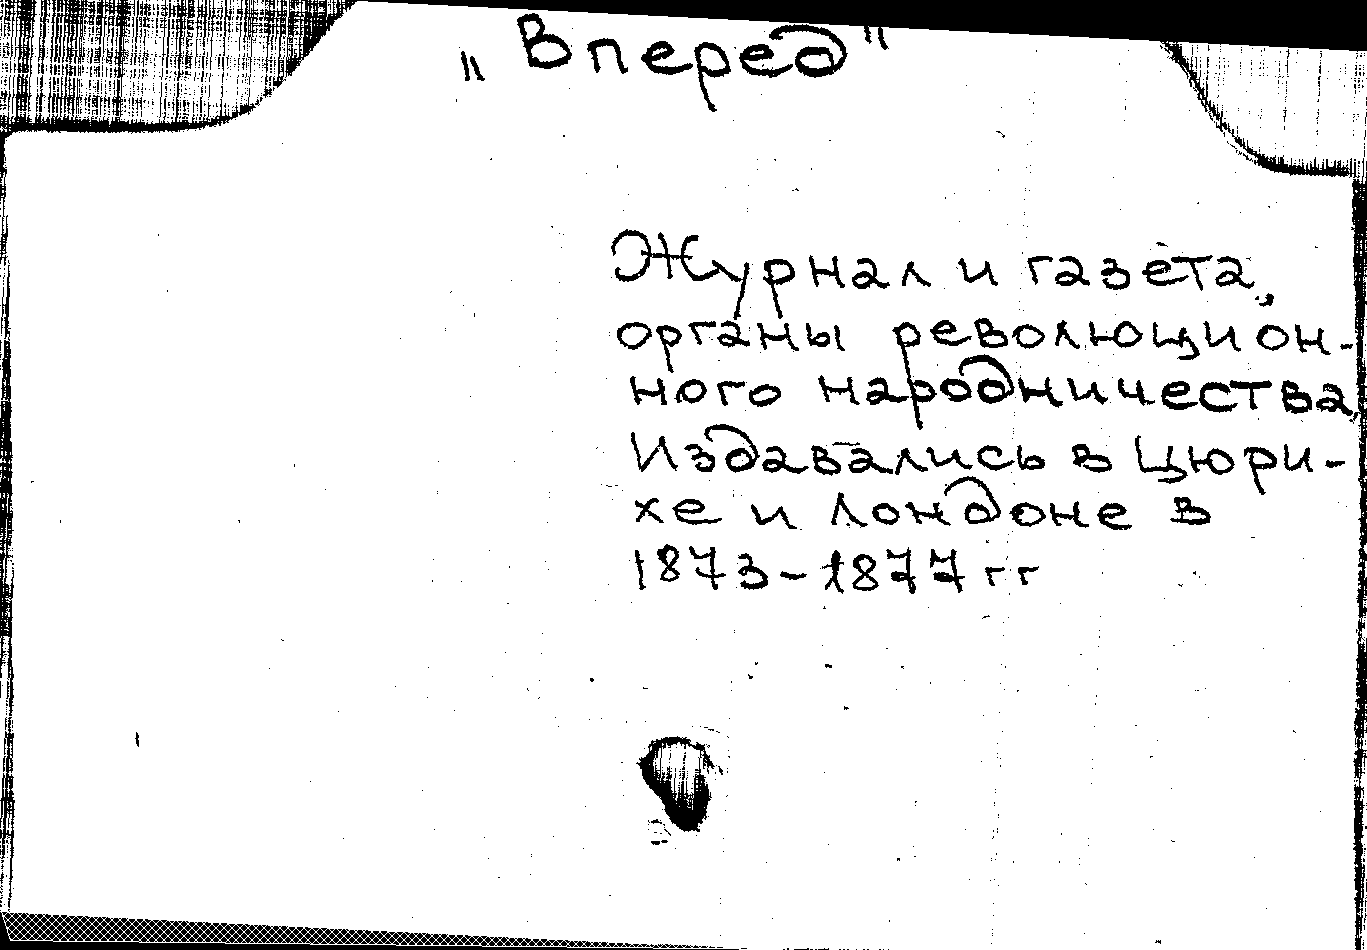 „Вперед"
Журнал и газета,
органы революцион-
ного народничества,
Издавались в Цюри-
хе и Лондоне в
1873-1877 гг